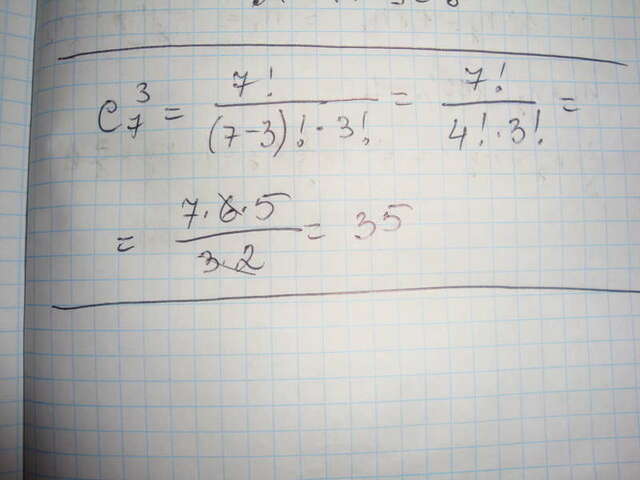 C₇³ = 7! / (7-3)! · 3! = 7! / 4! · 3! =
= 7·6·5 / 3·2 = 35